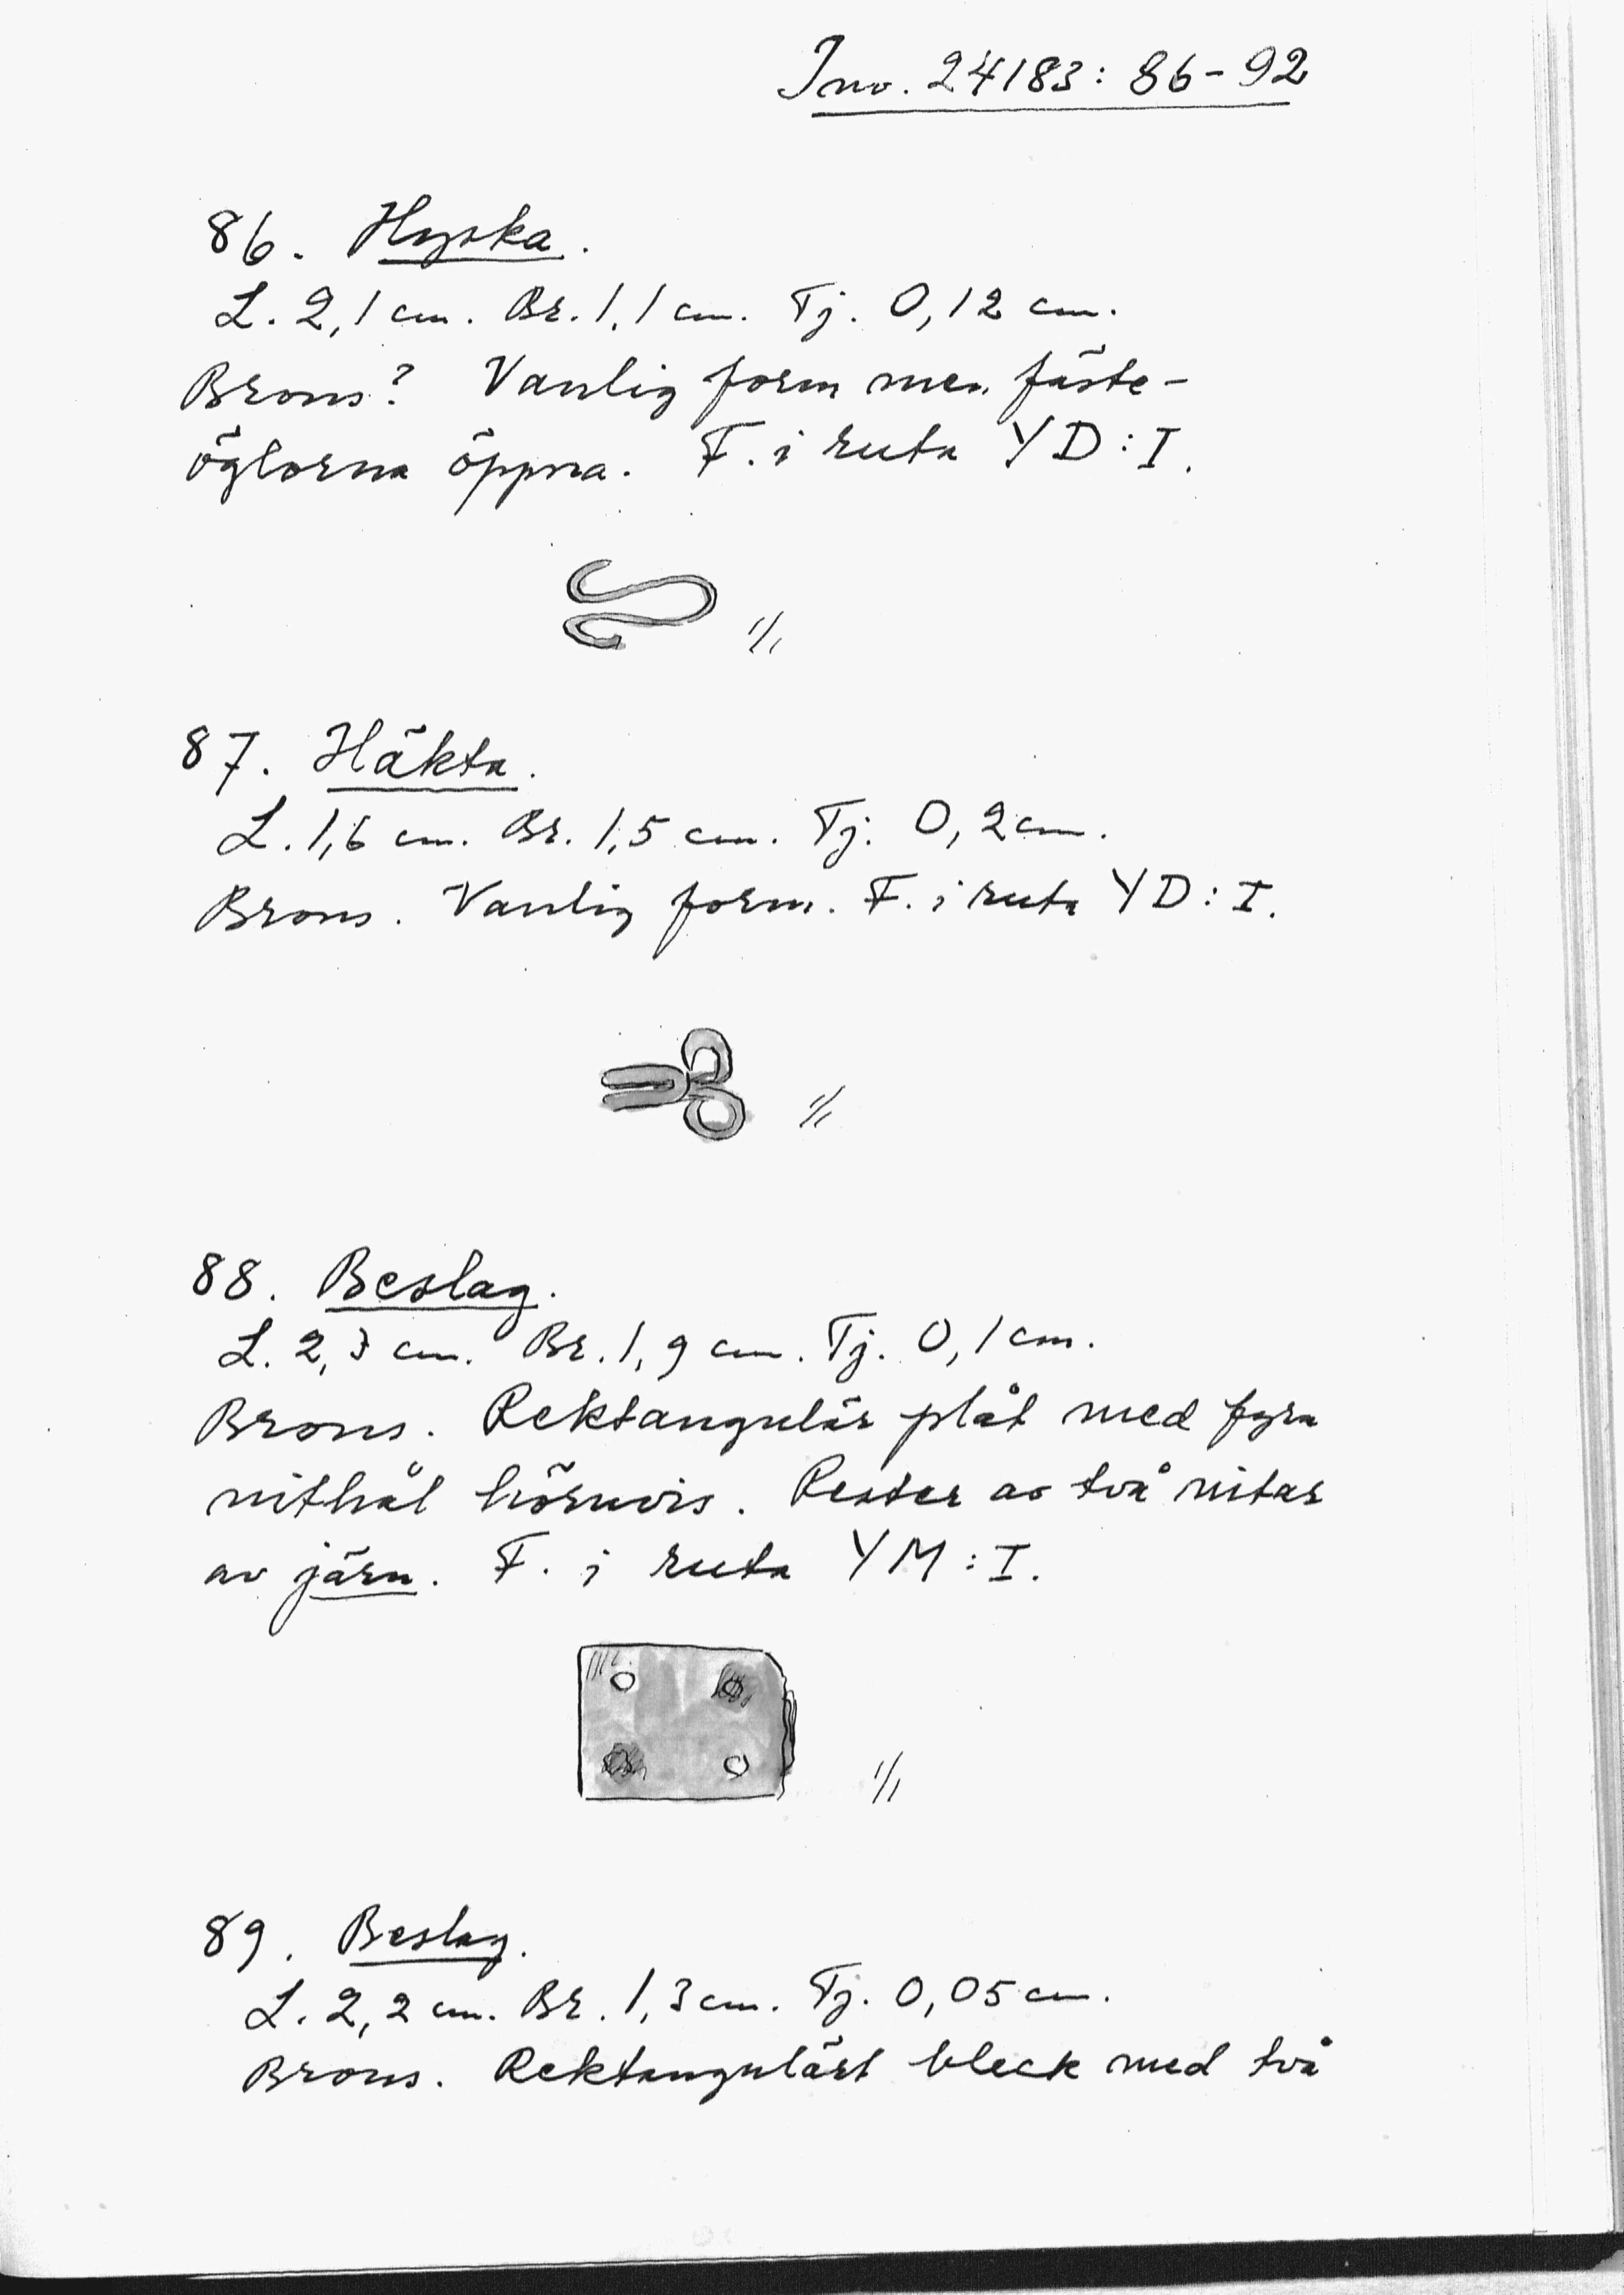 Inv. 24183: 86-92
86. Hyska.
L. 2,1 cm. Br. 1,1 cm. Tj. 0,12 cm.
Brons? Vanlig form men fäste-
öglorna öppna. F. i ruta YD:I.
1/1
87. Häkta.
L. 1,6 cm. Br. 1,5 cm. Tj. 0,2 cm.
Brons. Vanlig form. F. i ruta YD:I.
1/1
88. Beslag.
L. 2,3 cm. Br. 1,9 cm. Tj. 0,1 cm.
Brons. Rektangulär plåt med fyra
nithål hörnvis. Rester av två nitar
av järn. F. i ruta YM:I.
1/1
89. Beslag.
L. 2,2 cm. Br. 1,3 cm. Tj. 0,05 cm.
Brons. Rektangulärt bleck med två